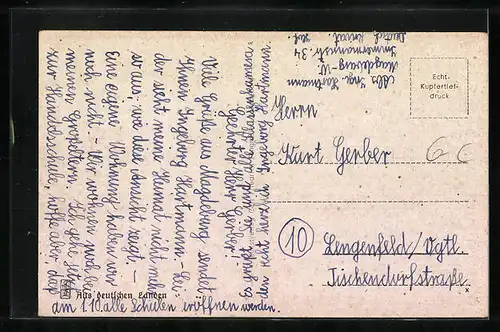 Abs. Inge Hartmann
Magdeburg-W.
Immermannstr. 34
Echt-
Kupfertief-
druck
Herrn
Kurt Gerber
10
Lengenfeld/Vgtl.
Tischendorfstraße
Geehrter Herr Gerber!
Viele Grüße aus Magdeburg sendet
Ihnen Ingeborg Hartmann. Lei-
der sieht meine Heimat nicht mehr
so aus, wie diese Ansicht zeigt. –
Eine eigene Wohnung haben wir
noch nicht. – Wir wohnen noch bei
meinen Großeltern. Ich gehe jetzt
zur Handelsschule, hoffe aber daß
am 1.10. alle Schulen eröffnen werden.
Es grüßt Sie und alle Klassenkameraden
recht herzlich Ingeborg Hartmann.
Aus deutschen Landen